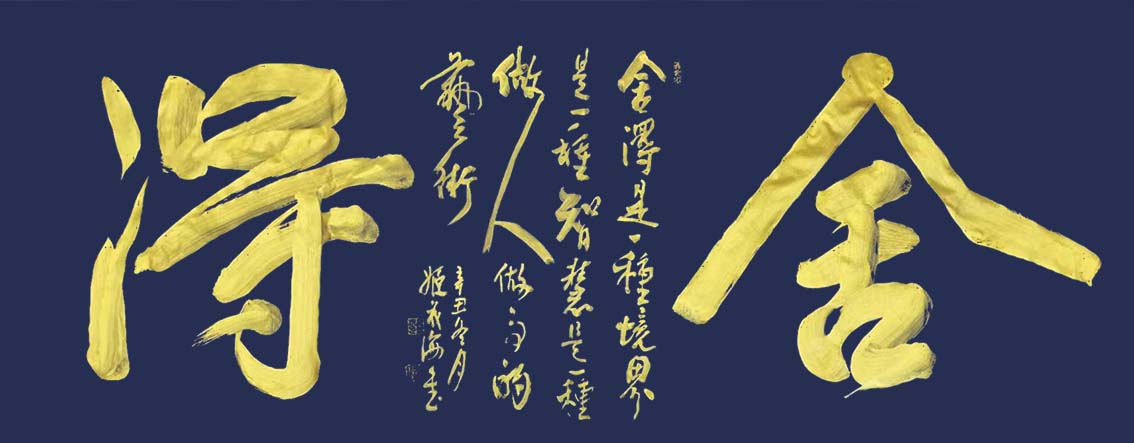 舍
舍得是一種境界
是一種智慧是一種
做人做事的
藝術
辛丑冬月
姬海書
得